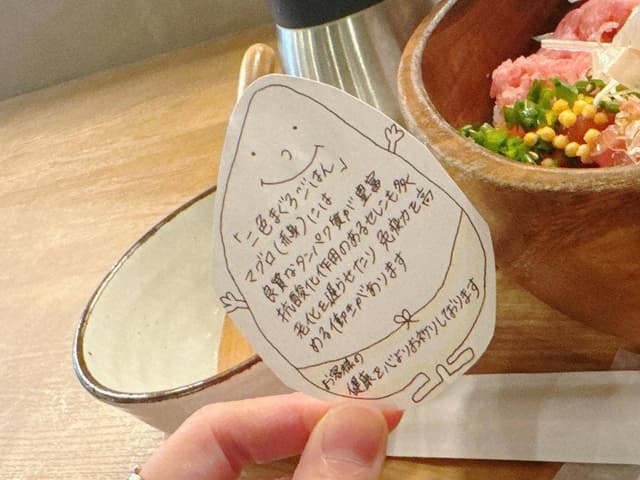 「二色まぐろごはん」
マグロ(赤身)には
良質なタンパク質が豊富
抗酸化作用のあるセレンも多く
老化を遅らせたり 免疫力を高
める働きがあります
お客様の
健康を心よりお祈りしております